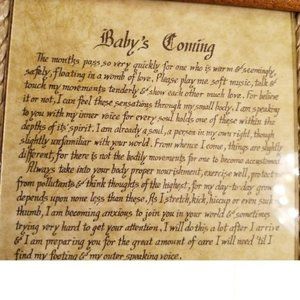 Baby's Coming
The months pass so very quickly for one who is warm & seemingly,
safely, floating in a womb of love. Please play me soft music, talk &
touch my movements tenderly & show each other much love. For believe
it or not, I can feel these sensations through my small body. I am speaking
to you with my inner voice for every soul holds one of these within the
depths of its' spirit. I am already a soul, a person in my own right, though
slightly unfamiliar with your world. From whence I come, things are slightly
different, for there is not the bodily movements for one to become accustomed.
Always take into your body proper nourishment, exercise well, protect
from pollutants & think thoughts of the highest, for my day-to-day grow
depends upon none less than these. As I stretch, kick, hiccup or even suck
thumb, I am becoming anxious to join you in your world & sometimes
trying very hard to get your attention. I will do this a lot after I arrive
& I am preparing you for the great amount of care I will need 'til I
find my footing & my outer speaking voice.